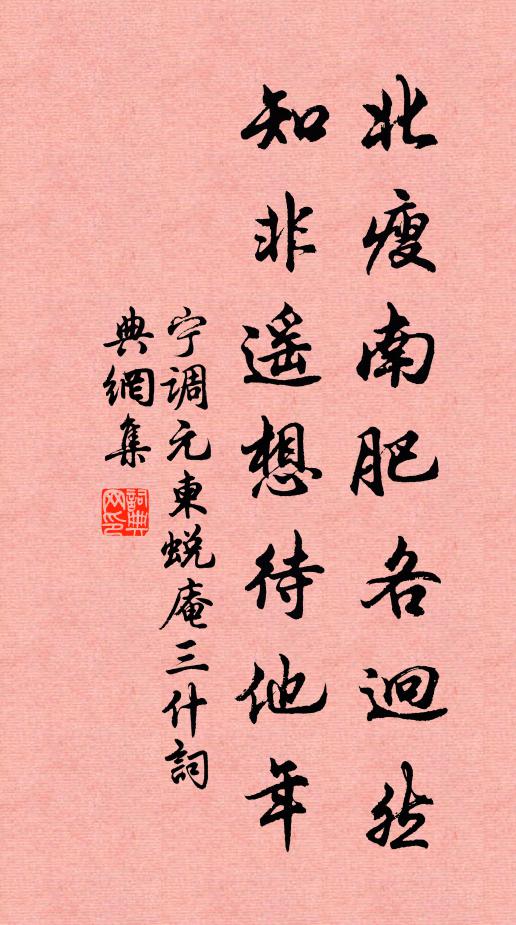 北瘦南肥各迥然
知非遥想待他年
宁调元東蜕庵三什詞
典網集
詞典網印